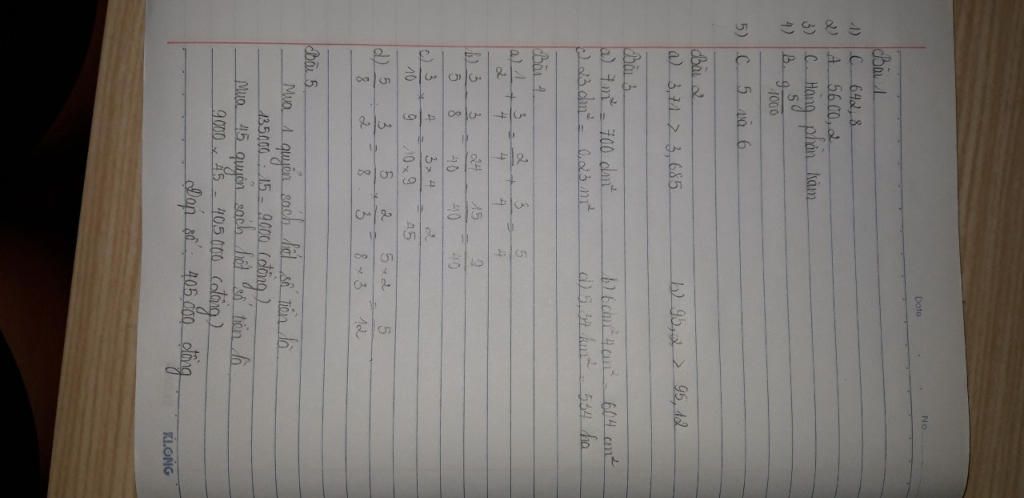 Date No
Bài 1
1) C 642,8
2) A 5600,2
3) C. Hàng phần trăm
4) B. 9 5/1000
5) C 5 và 6
Bài 2
a) 3,71 > 3,685 b) 95,2 > 95,12
Bài 3
a) 7m² = 700 dm² b) 6dm² 4cm² = 604 cm²
c) 23dm² = 0,23m² d) 5,34 km² = 534 ha
Bài 4
a) 1/2 + 3/4 = 2/4 + 3/4 = 5/4
b) 3/5 - 3/8 = 24/40 - 15/40 = 9/40
c) 3/10 × 4/9 = 3×4/10×9 = 2/15
d) 5/8 : 3/2 = 5/8 × 2/3 = 5×2/8×3 = 5/12
Bài 5
Mua 1 quyển sách hết số tiền là
135000 : 15 = 9000 (đồng)
Mua 45 quyển sách hết số tiền là
9000 × 45 = 405000 (đồng)
Đáp số : 405000 đồng
KLONG